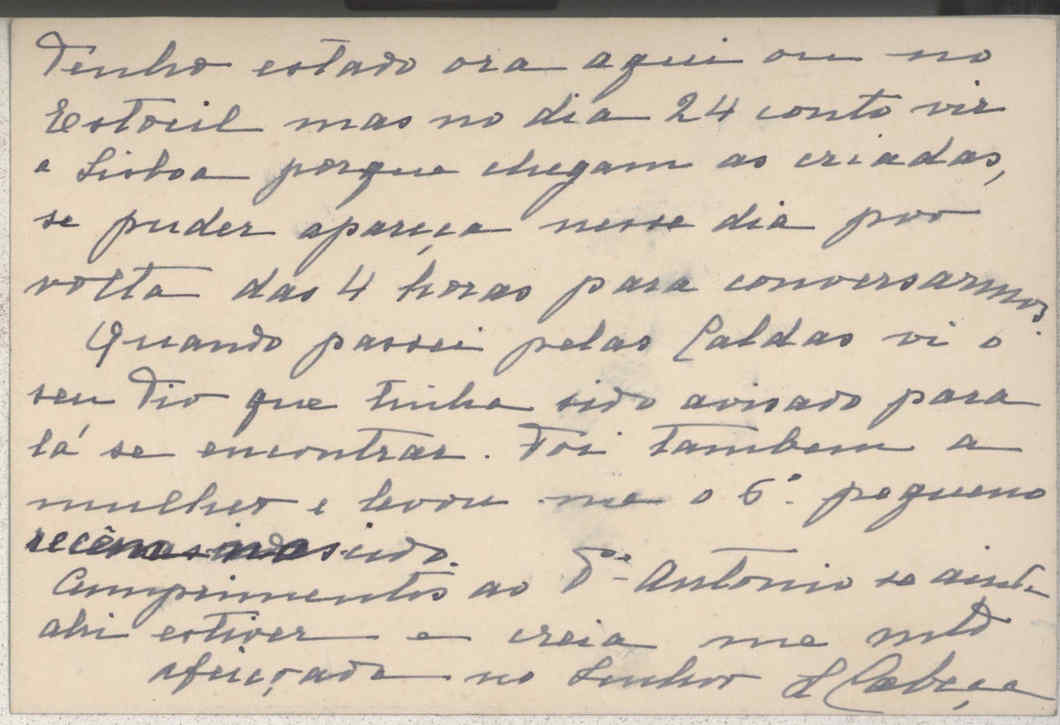 Tenho estado ora aqui ou no
Estoril mas no dia 24 conto vir
a Lisboa porque chegam as criadas,
se puder apareça nesse dia por
volta das 4 horas para conversarmos.
Quando passei pelas Caldas vi o
seu Tio que tinha sido avisado para
lá se encontrar. Foi tambem a
mulher e levou me o 6º pequeno
recêm
Cumprimentos ao Antonio se ainda
ahi estiver e creia me mtº
afeiçoada no Senhor